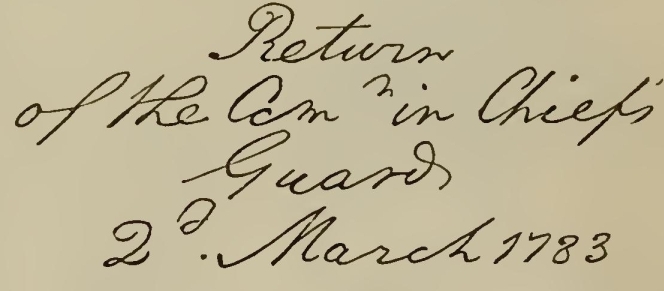 Return
of the Com ⁿ in Chiefs
Guard
2ᵈ. March 1783